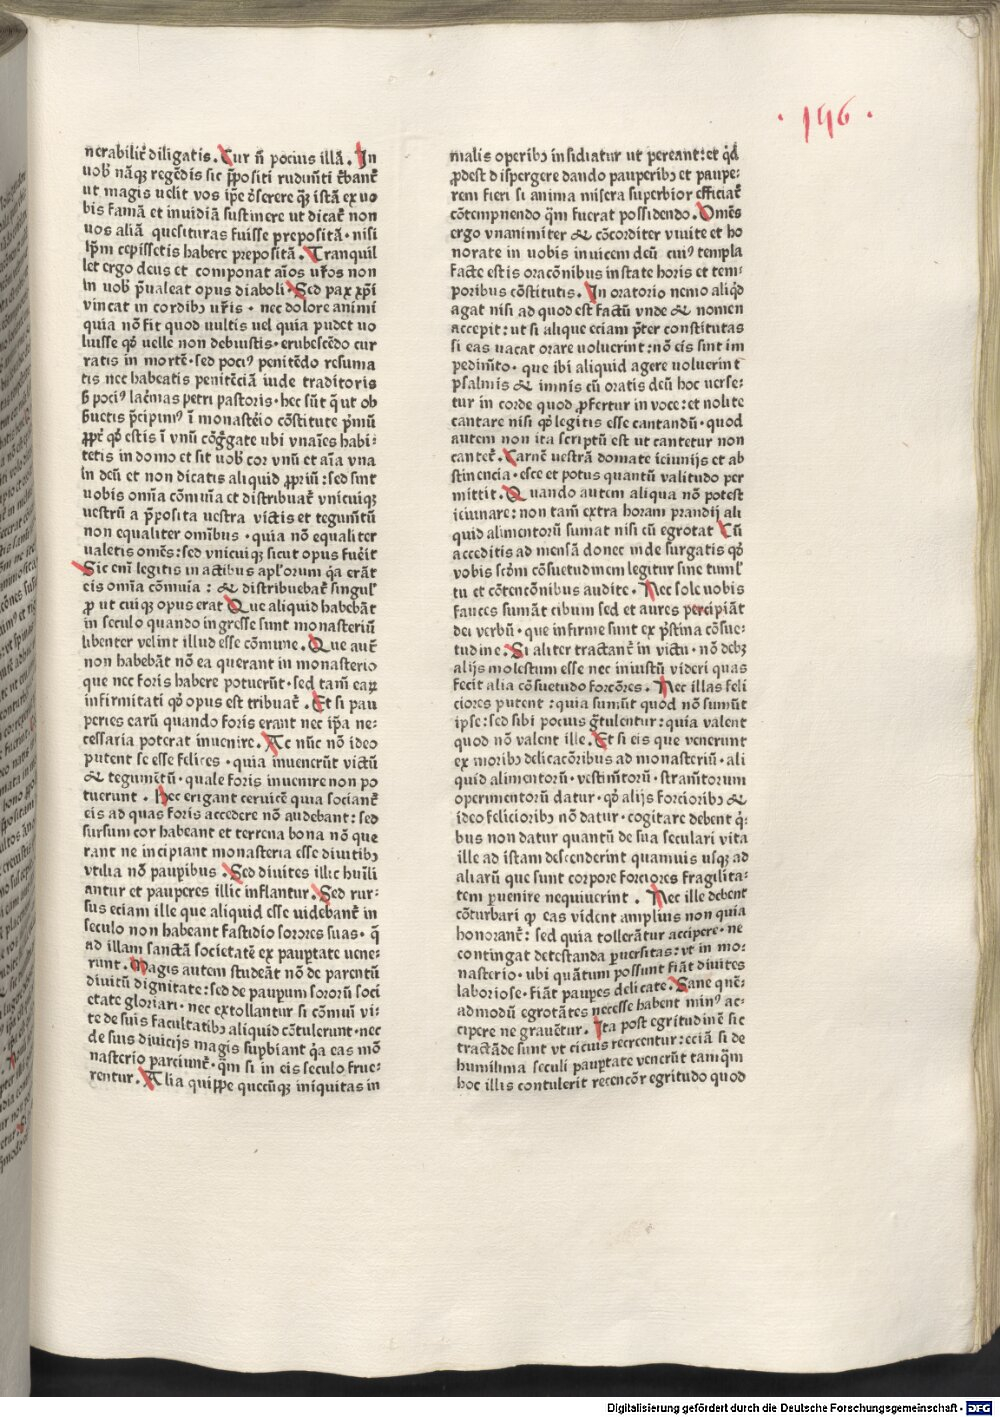 ·196·
nerabilit̄ diligatis. Cur n̄ pocius illā. In
uob̄ nāq̄ regēdis sic p̄positi rudim̄ti t̄bant̄
ut magis uelit vos ip̄e d̄serere q̄ istā ex uo
bis famā et inuidiā sustinere ut dicat̄ non
uos aliā quesituras fuisse prepositā · nisi
ip̄m cepissetis habere prepositā. Tranquil
let ergo deus et componat aīos ur̄os non
in uob̄ p̄ualeat opus diaboli · Sed pax xp̄i
vincat in cordibꝫ ur̄is · nec dolore animi
quia nō fit quod uultis uel quia pudet uo
luisse qd̄ uelle non debuistis · erubescēdo cur
ratis in mortē · sed pociꝰ penitēdo resuma
tis nec habeatis penitēciā iude traditoris
s̄ pociꝰ lac̄mas petri pastoris · hec sūt q̄ ut ob
s̄uetis p̄cipimꝰ ī monastēio cōstitute p̄mū
ꝓpt̄ qd̄ estis ī vnū cōḡgate ubi vnaīes habi:
tetis in domo et sit uob̄ cor vnū et aīa vna
in deū et non dicatis aliquid ꝓpriū : sed sint
uobis om̄ia cōmuīa et distribuat̄ vnicuiqꝫ
uestrū a p̄posita uestra victis et tegum̄tū
non equaliter omībus · quia nō equaliter
ualetis omēs : sed vnicuiqꝫ sicut opus fuēit
Sic enī legitis in actibus apl̄orum q̄a erāt
eis om̄ia cōmuia : & distribuebat̄ singul̄
ꝓ ut cuiqꝫ opus erat Que aliquid habebāt
in seculo quando ingresse sunt monasteriū
libenter velint illud esse cōmune. Que aut̄
non habebāt nō ea querant in monasterio
que nec foris habere potuerūt · sed tam̄ eaꝝ
infirmitati qd̄ opus est tribuat̄. Et si pau
peries earū quando foris erant nec ip̄a ne:
cessaria poterat inuenire. Ac nūc nō ideo
putent se esse felices · quia inuenerūt victū
& tegumētū · quale foris inuenire non po
tuerunt · Nec erigant ceruicē quia sociant̄
eis ad quas foris accedere nō audebant : sed
sursum cor habeant et terrena bona nō que
rant ne incipiant monasteria esse diuitibꝫ
vtilia nō paupibus · Sed diuites illic huīli
antur et pauperes illic inflantur. Sed rur:
sus eciam ille que aliquid esse uidebant̄ in
seculo non habeant fastidio sorores suas · q̄
ad illam sanctā societatē ex pauptate uene:
runt. Magis autem studeāt nō de parentū
diuitū dignitate : sed de paupum sororū soci
etate gloriari · nec extollantur si cōmuī vi:
te de suis facultatibꝫ aliquid cōtulerunt · nec
de suis diuicijs magis supbiant q̄a eas mō
nasterio parciunt̄ · q̄m si in eis seculo frue:
rentur. Alia quippe quecūqꝫ iniquitas in
malis operibꝫ insidiatur ut pereant : et q̄d
ꝓdest dispergere dando pauperibꝫ et paupe:
rem fieri si anima misera superbior efficiat̄
cōtempnendo q̄m fuerat possidendo. Omēs
ergo vnanimiter & cōcorditer viuite et ho
norate in uobis inuicem deū cuiꝰ templa
facte estis oracōnibus instate horis et tem:
poribus cōstitutis. In oratorio nemo aliq̄d
agat nisi ad quod est factū vnde & nomen
accepit : ut si alique eciam p̄ter constitutas
si eas uacat orare uoluerint : nō eis sint im
pedim̄to · que ibi aliquid agere uoluerint
psalmis & imnis cū oratis deū hoc uerse:
tur in corde quod ꝓfertur in voce : et nolite
cantare nisi qd̄ legitis esse cantandū · quod
autem non ita scriptū est ut cantetur non
cantet̄. Carnē uestrā domate ieiunijs et ab
stinencia · esce et potus quantū valitudo per
mittit. Quando autem aliqua nō potest
ieiunare : non tam̄ extra horam prandij ali
quid alimentorū sumat nisi cū egrotat Cū
acceditis ad mensā donec inde surgatis qd̄
vobis scd̄m cōsuetudinem legitur sine tumł
tu et cōtencōnibus audite · Nec sole uobis
fauces sumāt cibum sed et aures percipiāt
dei verbū · que infirme sunt ex p̄stina cōsue:
tudine. Si aliter tractant̄ in victu · nō debꝫ
alijs molestum esse nec iniustū videri quas
fecit alia cōsuetudo forcōres. Nec illas feli
ciores putent : quia sumūt quod nō sumūt
ipse : sed sibi pocius g̃tulentur : quia valent
quod nō valent ille. Et si eis que venerunt
ex moribꝫ delicacōribus ad monasteriū · ali
quid alimentorū · vestim̄torū · stram̄torum
operimentorū datur · qd̄ alijs forcioribꝫ &
ideo felicioribꝫ nō datur · cogitare debent q̄:
bus non datur quantū de sua seculari vita
ille ad istam descenderint quamuis usqꝫ ad
aliarū que sunt corpore forciores fragilita:
tem ꝑuenire nequiuerint. Nec ille debent
cōturbari qꝫ eas vident amplius non quia
honorant̄ : sed quia tollerātur accipere · ne
contingat detestanda ꝑuersitas : vt in mo:
nasterio · ubi quātum possunt fiāt diuites
laboriose · fiāt paupes delicate. Sane quē:
admodū egrotātes necesse habent minꝰ ac:
cipere ne grauētur. Ita post egritudinē sic
tractāde sunt vt cicius recreentur : eciā si de
humilima seculi pauptate venerūt tamq̄m
hoc illis contulerit recencōr egritudo quod
Digitalisierung gefördert durch die Deutsche Forschungsgemeinschaft · DFG